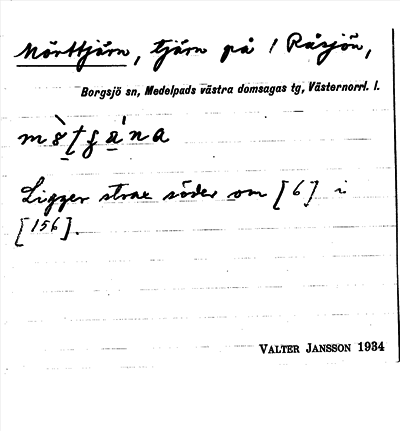 Mörttjärn, tjärn på 1 Råsjön,
Borgsjö sn, Medelpads västra domsagas tg, Västernorrl. l.
Ligger strax söder om [6] i
[156].
VALTER JANSSON 1934